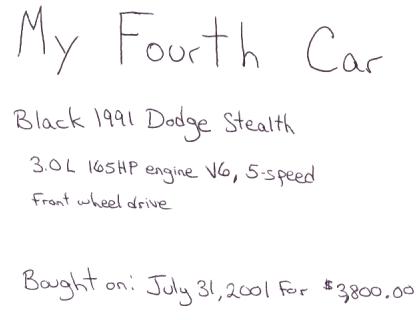 My Fourth Car
Black 1991 Dodge Stealth
3.0L 165HP engine V6, 5-speed
Front wheel drive
Bought on: July 31, 2001 For $3,800.00